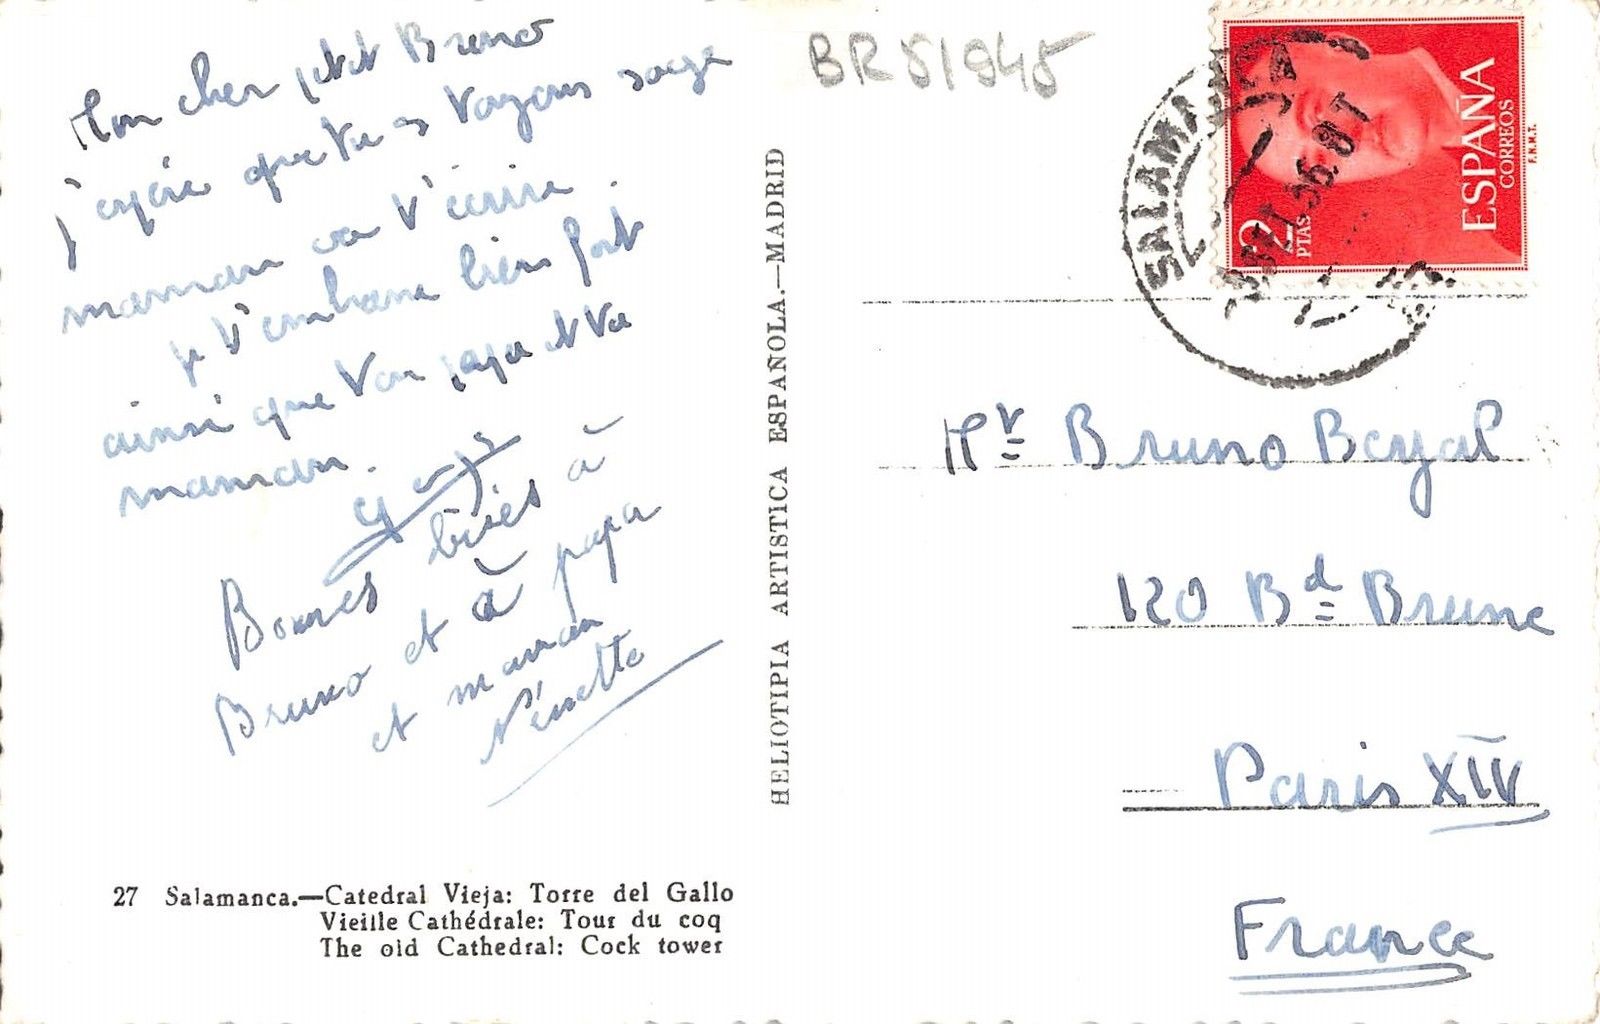 Mon cher petit Bruno
j'espère que tu es toujours sage
maman va t'écrire.
je t'embrasse bien fort
ainsi que ton papa et ta
maman.
Bonnes bises à
Bruno et à papa
et maman
Ninette
27 Salamanca.—Catedral Vieja: Torre del Gallo
Vieille Cathédrale: Tour du coq
The old Cathedral: Cock tower
HELIOTIPIA ARTISTICA ESPAÑOLA.—MADRID
BR51945
SALAMANCA
ESPAÑA
CORREOS
2 PTAS
F.N.M.T.
Mr Bruno Bayal
120 Bd Brune
Paris XIV
France